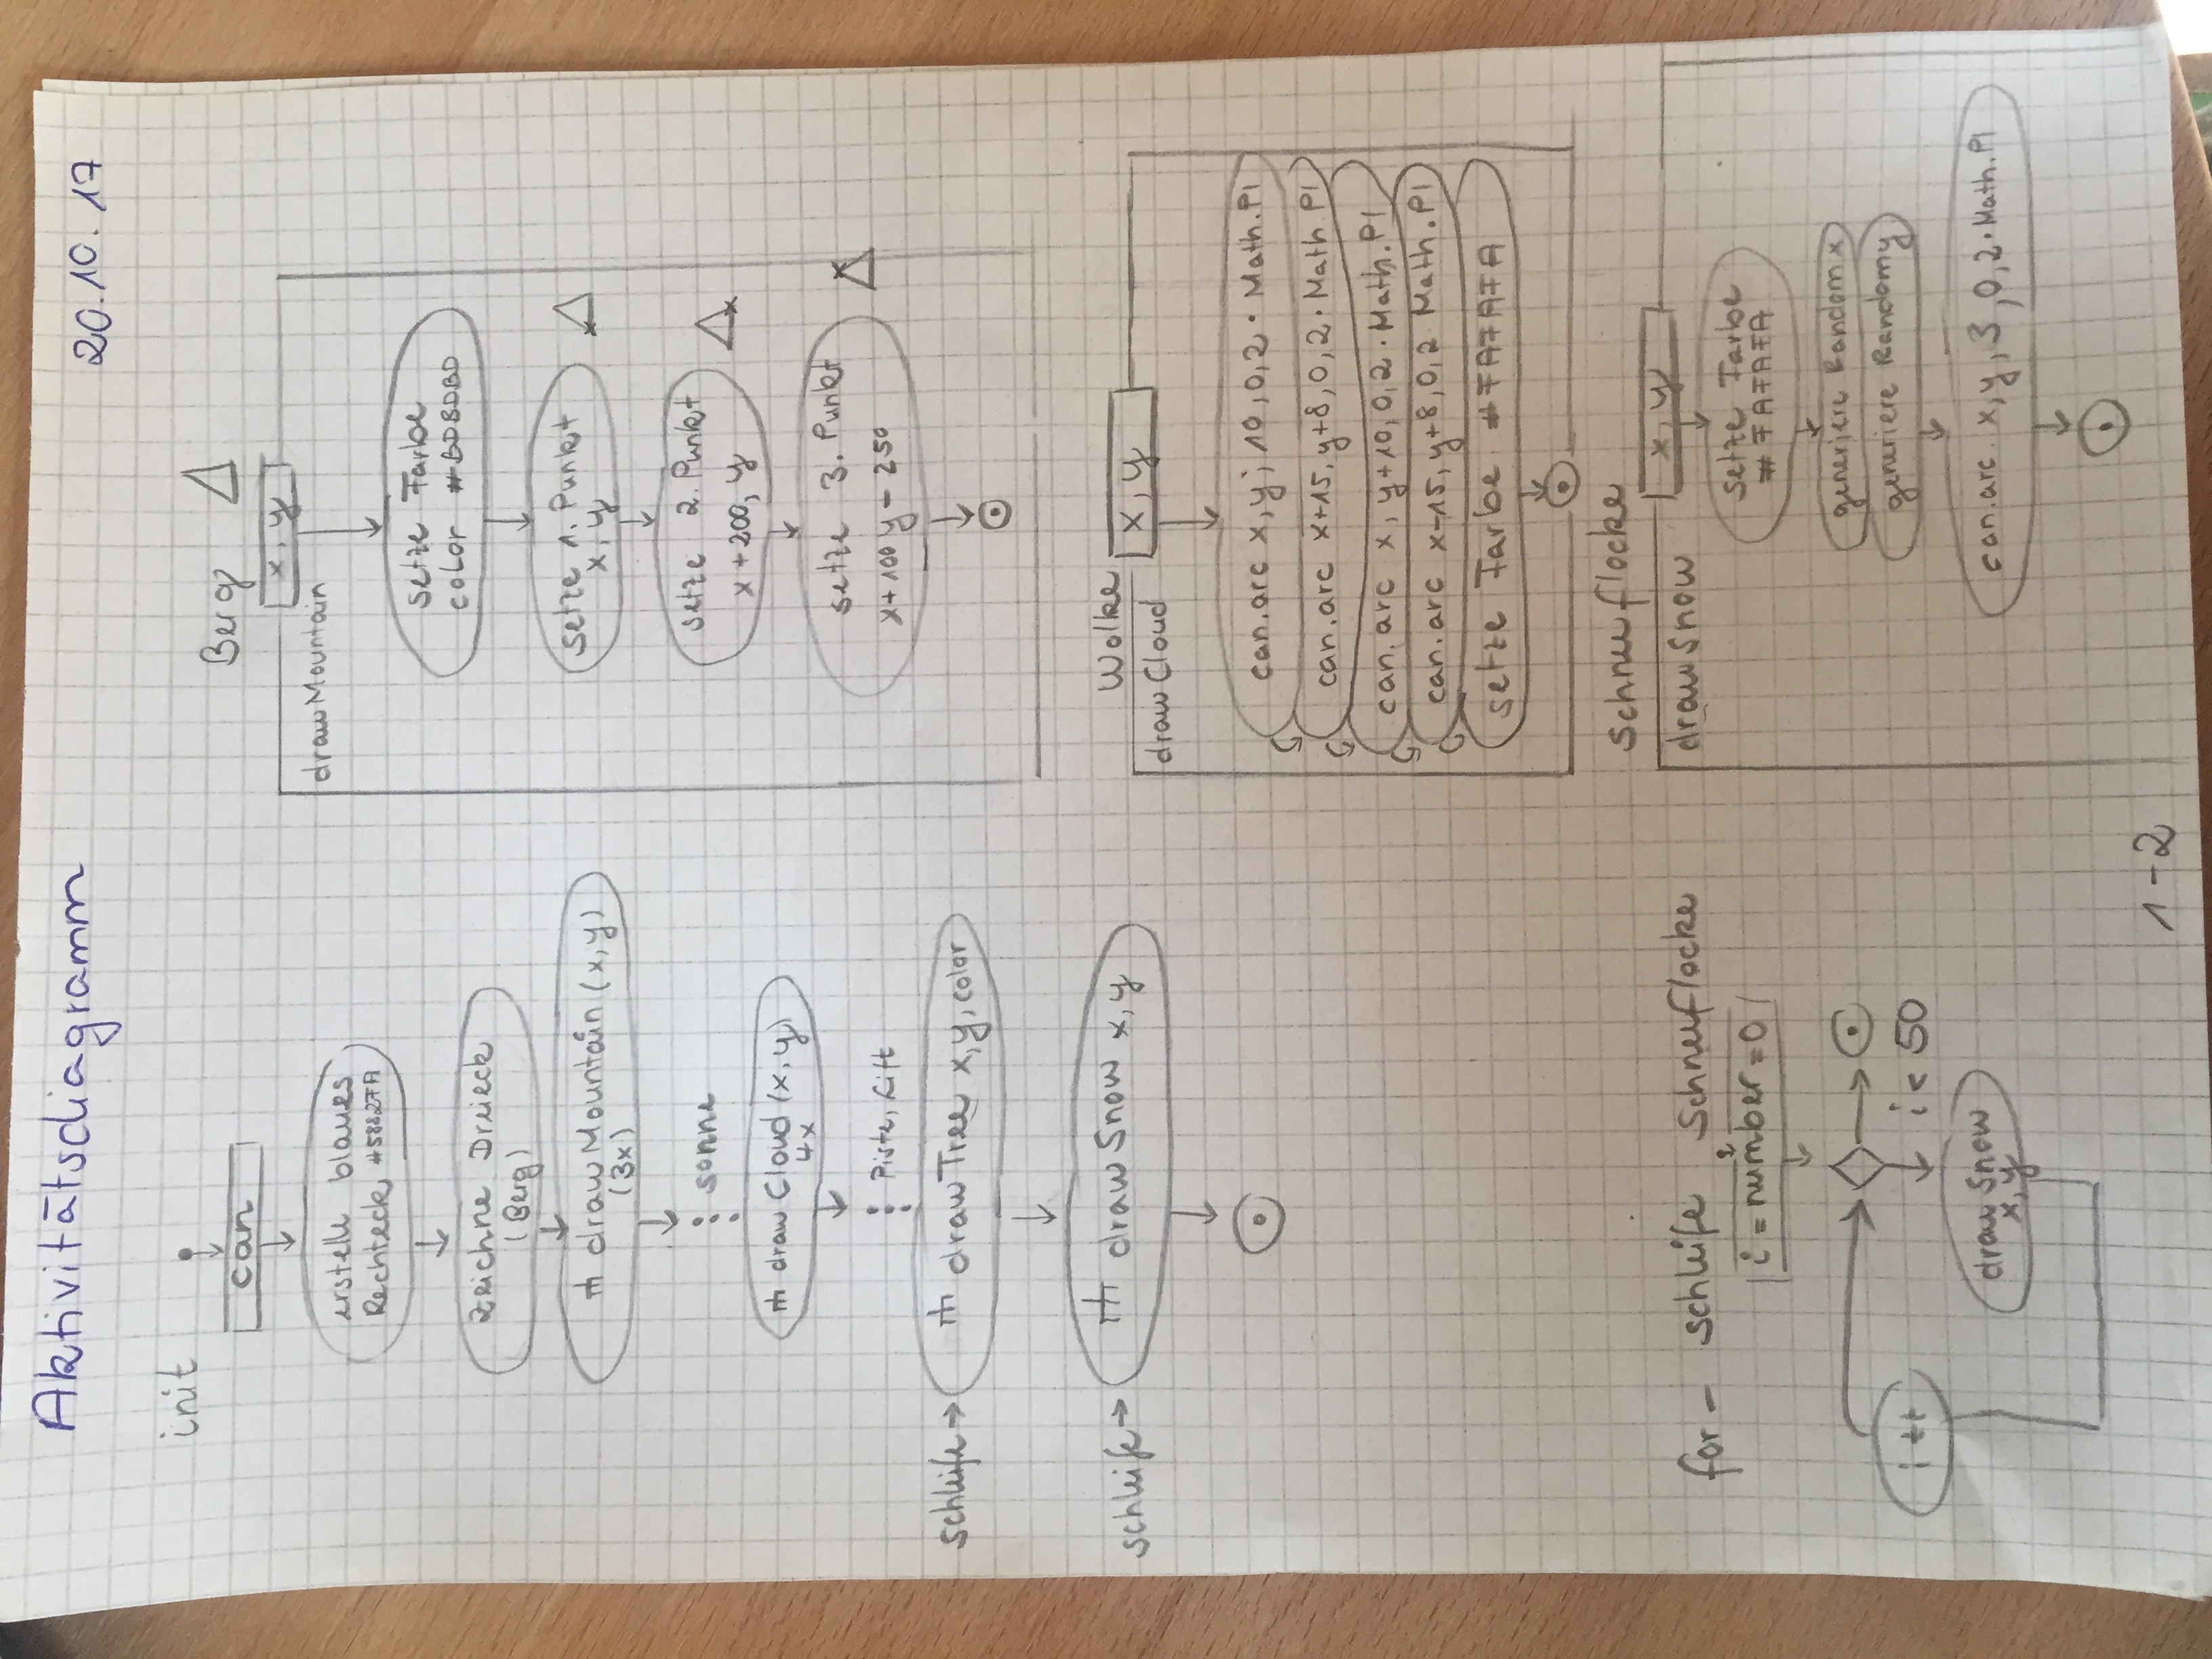 Aktivitätsdiagramm
20.10.17
init
can
erstelle blaues
Rechteck #5882FA
Zeichne Dreieck
(Berg)
drawMountain (x,y)
(3x)
sonne
draw Cloud (x,y)
4x
Piste, Lift
schleife → drawTree x,y,color
schleife → draw Snow x,y
Berg
x, y
drawMountain
setze Farbe
color #BDBDBD
setze 1. Punkt
x, y
setze 2. Punkt
x+200, y
setze 3. Punkt
x+100 y-250
Wolke
x, y
draw Cloud
can.arc x,y; 10,0,2 · Math.PI
can.arc x+15, y+8,0,2 · Math PI
can.arc x, y+10,0,2 · Math.PI
can.arc x-15, y+8,0,2 Math.PI
setze Farbe #FAFAFA
for - schleife Schneeflocke
i = number = 0
i < 50
i ++
draw Snow
x,y
Schneeflocke
x, y
draw Snow
setze Farbe
#FAFAFA
generiere Random x
generiere Random y
can.arc x,y,3,0,2·Math.PI
1-2